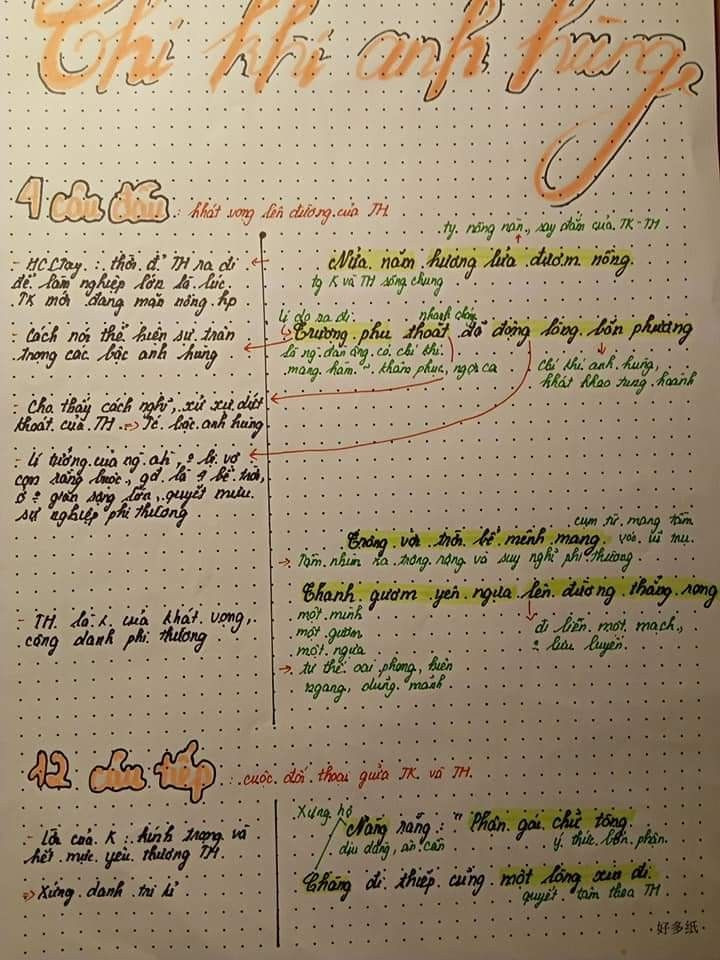 Chí khí anh hùng
4 câu đầu : khát vọng lên đường của TH
ty. nồng nàn, say đắm của TK-TH
- HCLTay : thời đ' TH ra đi
để làm nghiệp lớn là lúc
TK mới đang mặn nồng hp
Nửa năm hương lửa đượm nồng
ty K và TH sống chung
lí do ra đi
nhanh chóng
- Cách nói thể hiện sự trân
trọng các bậc anh hùng
Trượng phu thoắt đã động lòng bốn phương
là ng đàn ông có chí khí
mang hàm ~ khâm phục, ngợi ca
chí khí anh hùng,
khát khao tung hoành
- Cho thấy cách nghĩ, xử xự dứt
khoát của TH => Tc bậc anh hùng
- Lí tưởng của ng ah, ? bị vợ
con ràng buộc, gđ là 4 bề trời,
ở ? gian sống lớn, quyết mưu
sự nghiệp phi thường
cụm từ mang tầm
vóc vũ trụ
Trông vời trời bể mênh mang
-> Tầm nhìn xa trông rộng và suy nghĩ phi thường
Thanh gươm yên ngựa lên đường thẳng rong
- TH là k của khát vọng,
công danh phi thường
một mình
một gươm
một ngựa
-> tư thế oai phong, hiên
ngang, dũng mãnh
đi liền một mạch,
? lưu luyến
12 câu tiếp : cuộc đối thoại giữa TK và TH
- Lời của K : kính trọng và
hết mực yêu thương TH
=> Xứng danh tri kỉ
Xưng hô
Nàng rằng : "Phận gái chữ tòng
dịu dàng, ân cần
ý thức bổn phận
Chàng đi thiếp cũng một lòng xin đi
quyết tâm theo TH
好多纸